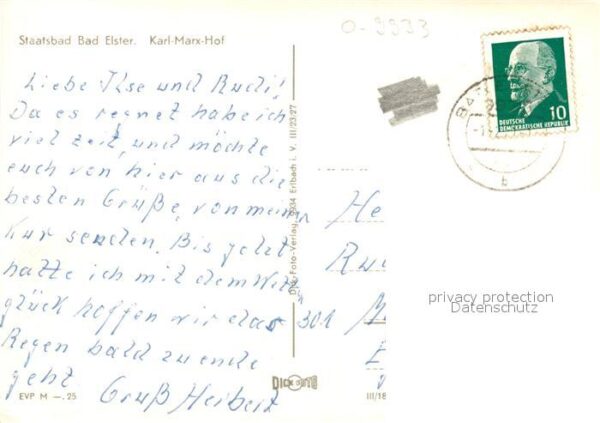 o-9933
Staatsbad Bad Elster. Karl-Marx-Hof
Liebe Ilse und Rudi!
Da es regnet habe ich
viel Zeit, und möchte
euch von hier aus die
besten Grüße, von meiner
Kur senden. Bis jetzt
hatte ich mit dem Wetter
glück hoffen wir das
Regen bald zu ende
geht Gruß Herbert
EVP M —.25
Dick-Foto-Verlag, 9934 Erlbach i. V. III/23/27
DICK FOTO
III/18
10
DEUTSCHE
DEMOKRATISCHE REPUBLIK
BAD
b
He
Rud
301
privacy protection
Datenschutz